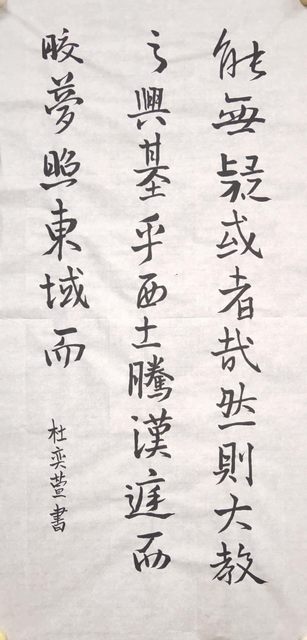 能無疑或者哉然則大教
之興基乎西土騰漢庭而
皎夢照東域而
杜奕萱書